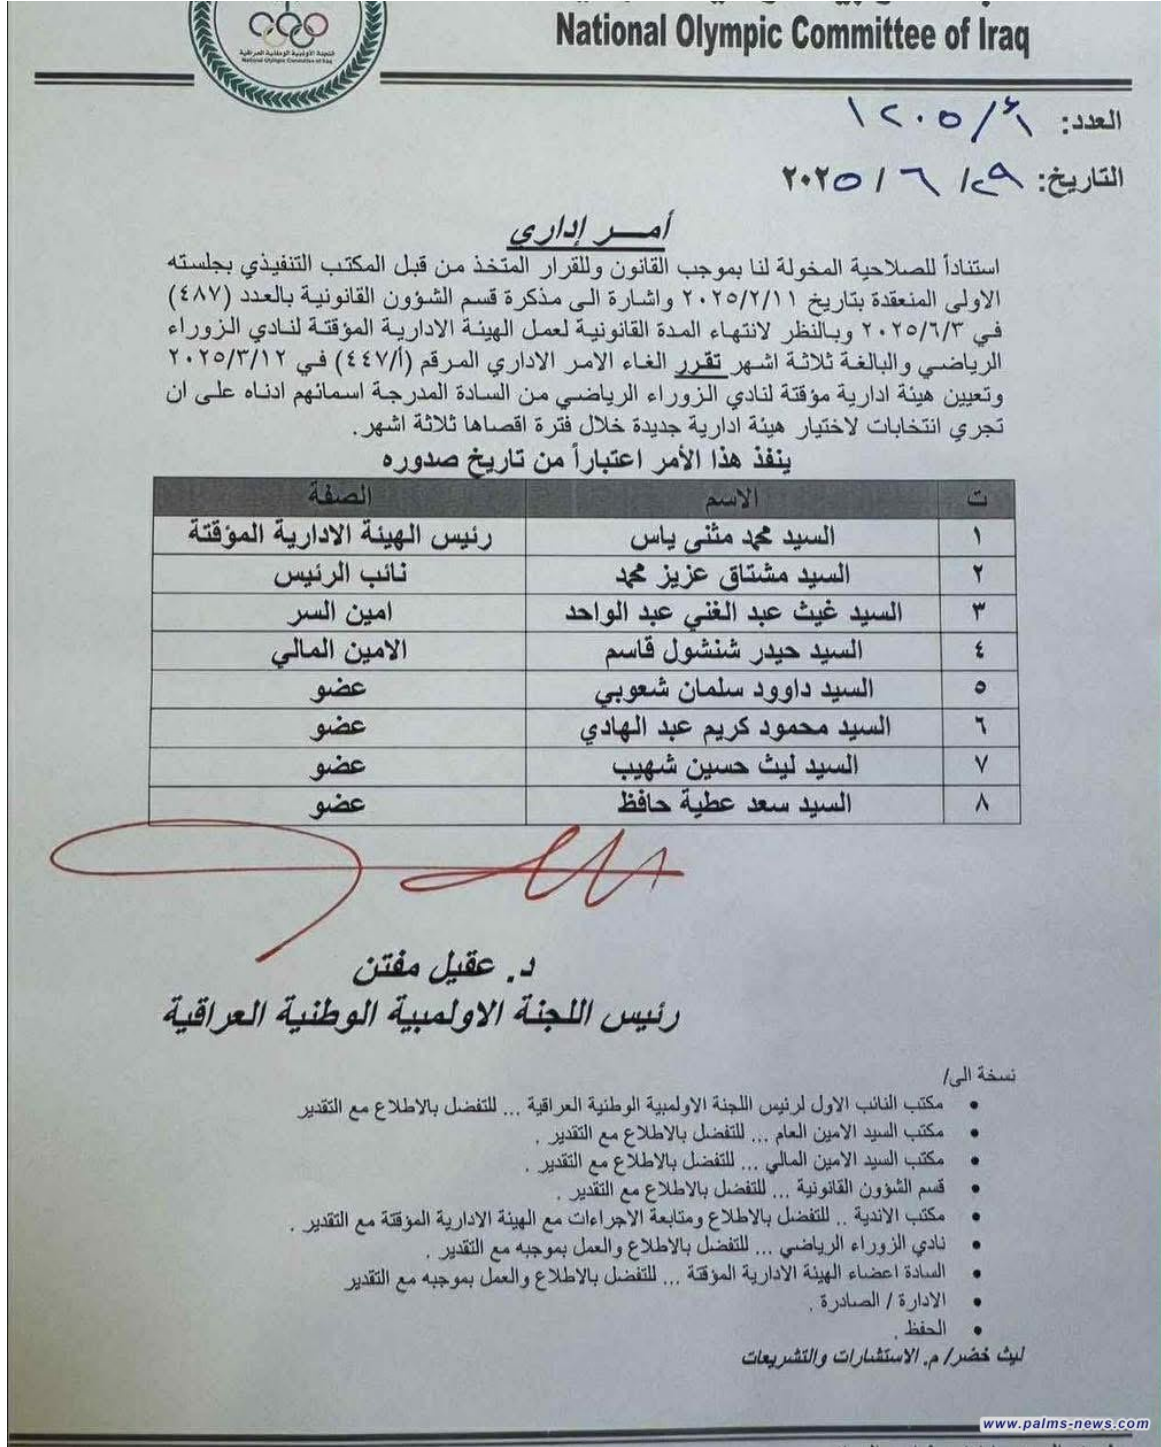 National Olympic Committee of Iraq
اللجنة الأولمبية الوطنية العراقية
National Olympic Committee of Iraq
العدد: أ/١٢٠٥
التاريخ: ٢٩/ ٦ / ٢٠٢٥
أمـــر إداري
استناداً للصلاحية المخولة لنا بموجب القانون وللقرار المتخذ من قبل المكتب التنفيذي بجلسته
الاولى المنعقدة بتاريخ ٢٠٢٥/٢/١١ واشارة الى مذكرة قسم الشؤون القانونية بالعدد (٤٨٧)
في ٢٠٢٥/٦/٣ وبالنظر لانتهاء المدة القانونية لعمل الهيئة الادارية المؤقتة لنادي الزوراء
الرياضي والبالغة ثلاثة اشهر تقرر الغاء الامر الاداري المرقم (أ/٤٤٧) في ٢٠٢٥/٣/١٢
وتعيين هيئة ادارية مؤقتة لنادي الزوراء الرياضي من السادة المدرجة اسمائهم ادناه على ان
تجري انتخابات لاختيار هيئة ادارية جديدة خلال فترة اقصاها ثلاثة اشهر.
ينفذ هذا الأمر اعتباراً من تاريخ صدوره
ت الاسم الصفة
١ السيد محمد مثنى ياس رئيس الهيئة الادارية المؤقتة
٢ السيد مشتاق عزيز محمد نائب الرئيس
٣ السيد غيث عبد الغني عبد الواحد امين السر
٤ السيد حيدر شنشول قاسم الامين المالي
٥ السيد داوود سلمان شعوبي عضو
٦ السيد محمود كريم عبد الهادي عضو
٧ السيد ليث حسين شهيب عضو
٨ السيد سعد عطية حافظ عضو
د. عقيل مفتن
رئيس اللجنة الاولمبية الوطنية العراقية
نسخة الى/
• مكتب النائب الاول لرئيس اللجنة الاولمبية الوطنية العراقية ... للتفضل بالاطلاع مع التقدير
• مكتب السيد الامين العام ... للتفضل بالاطلاع مع التقدير .
• مكتب السيد الامين المالي ... للتفضل بالاطلاع مع التقدير .
• قسم الشؤون القانونية ... للتفضل بالاطلاع مع التقدير .
• مكتب الاندية .. للتفضل بالاطلاع ومتابعة الاجراءات مع الهيئة الادارية المؤقتة مع التقدير .
• نادي الزوراء الرياضي ... للتفضل بالاطلاع والعمل بموجبه مع التقدير .
• السادة اعضاء الهيئة الادارية المؤقتة ... للتفضل بالاطلاع والعمل بموجبه مع التقدير
• الادارة / الصادرة .
• الحفظ .
ليث خضر/ م. الاستشارات والتشريعات
www.palms-news.com